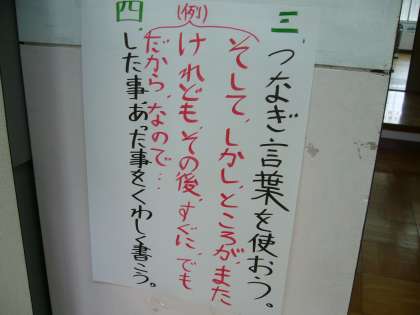 三、つなぎ言葉を使おう。
(例)
そして、しかし、ところが、また
けれども、その後、すぐに、でも
だから、なので…
四、した事、あった事をくわしく書う。